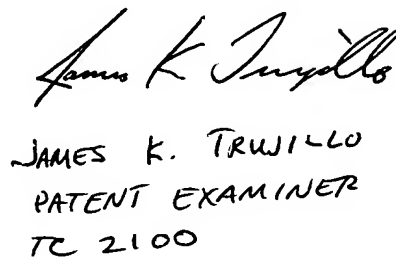 James K Trujillo
JAMES K. TRUJILLO
PATENT EXAMINER
TC 2100